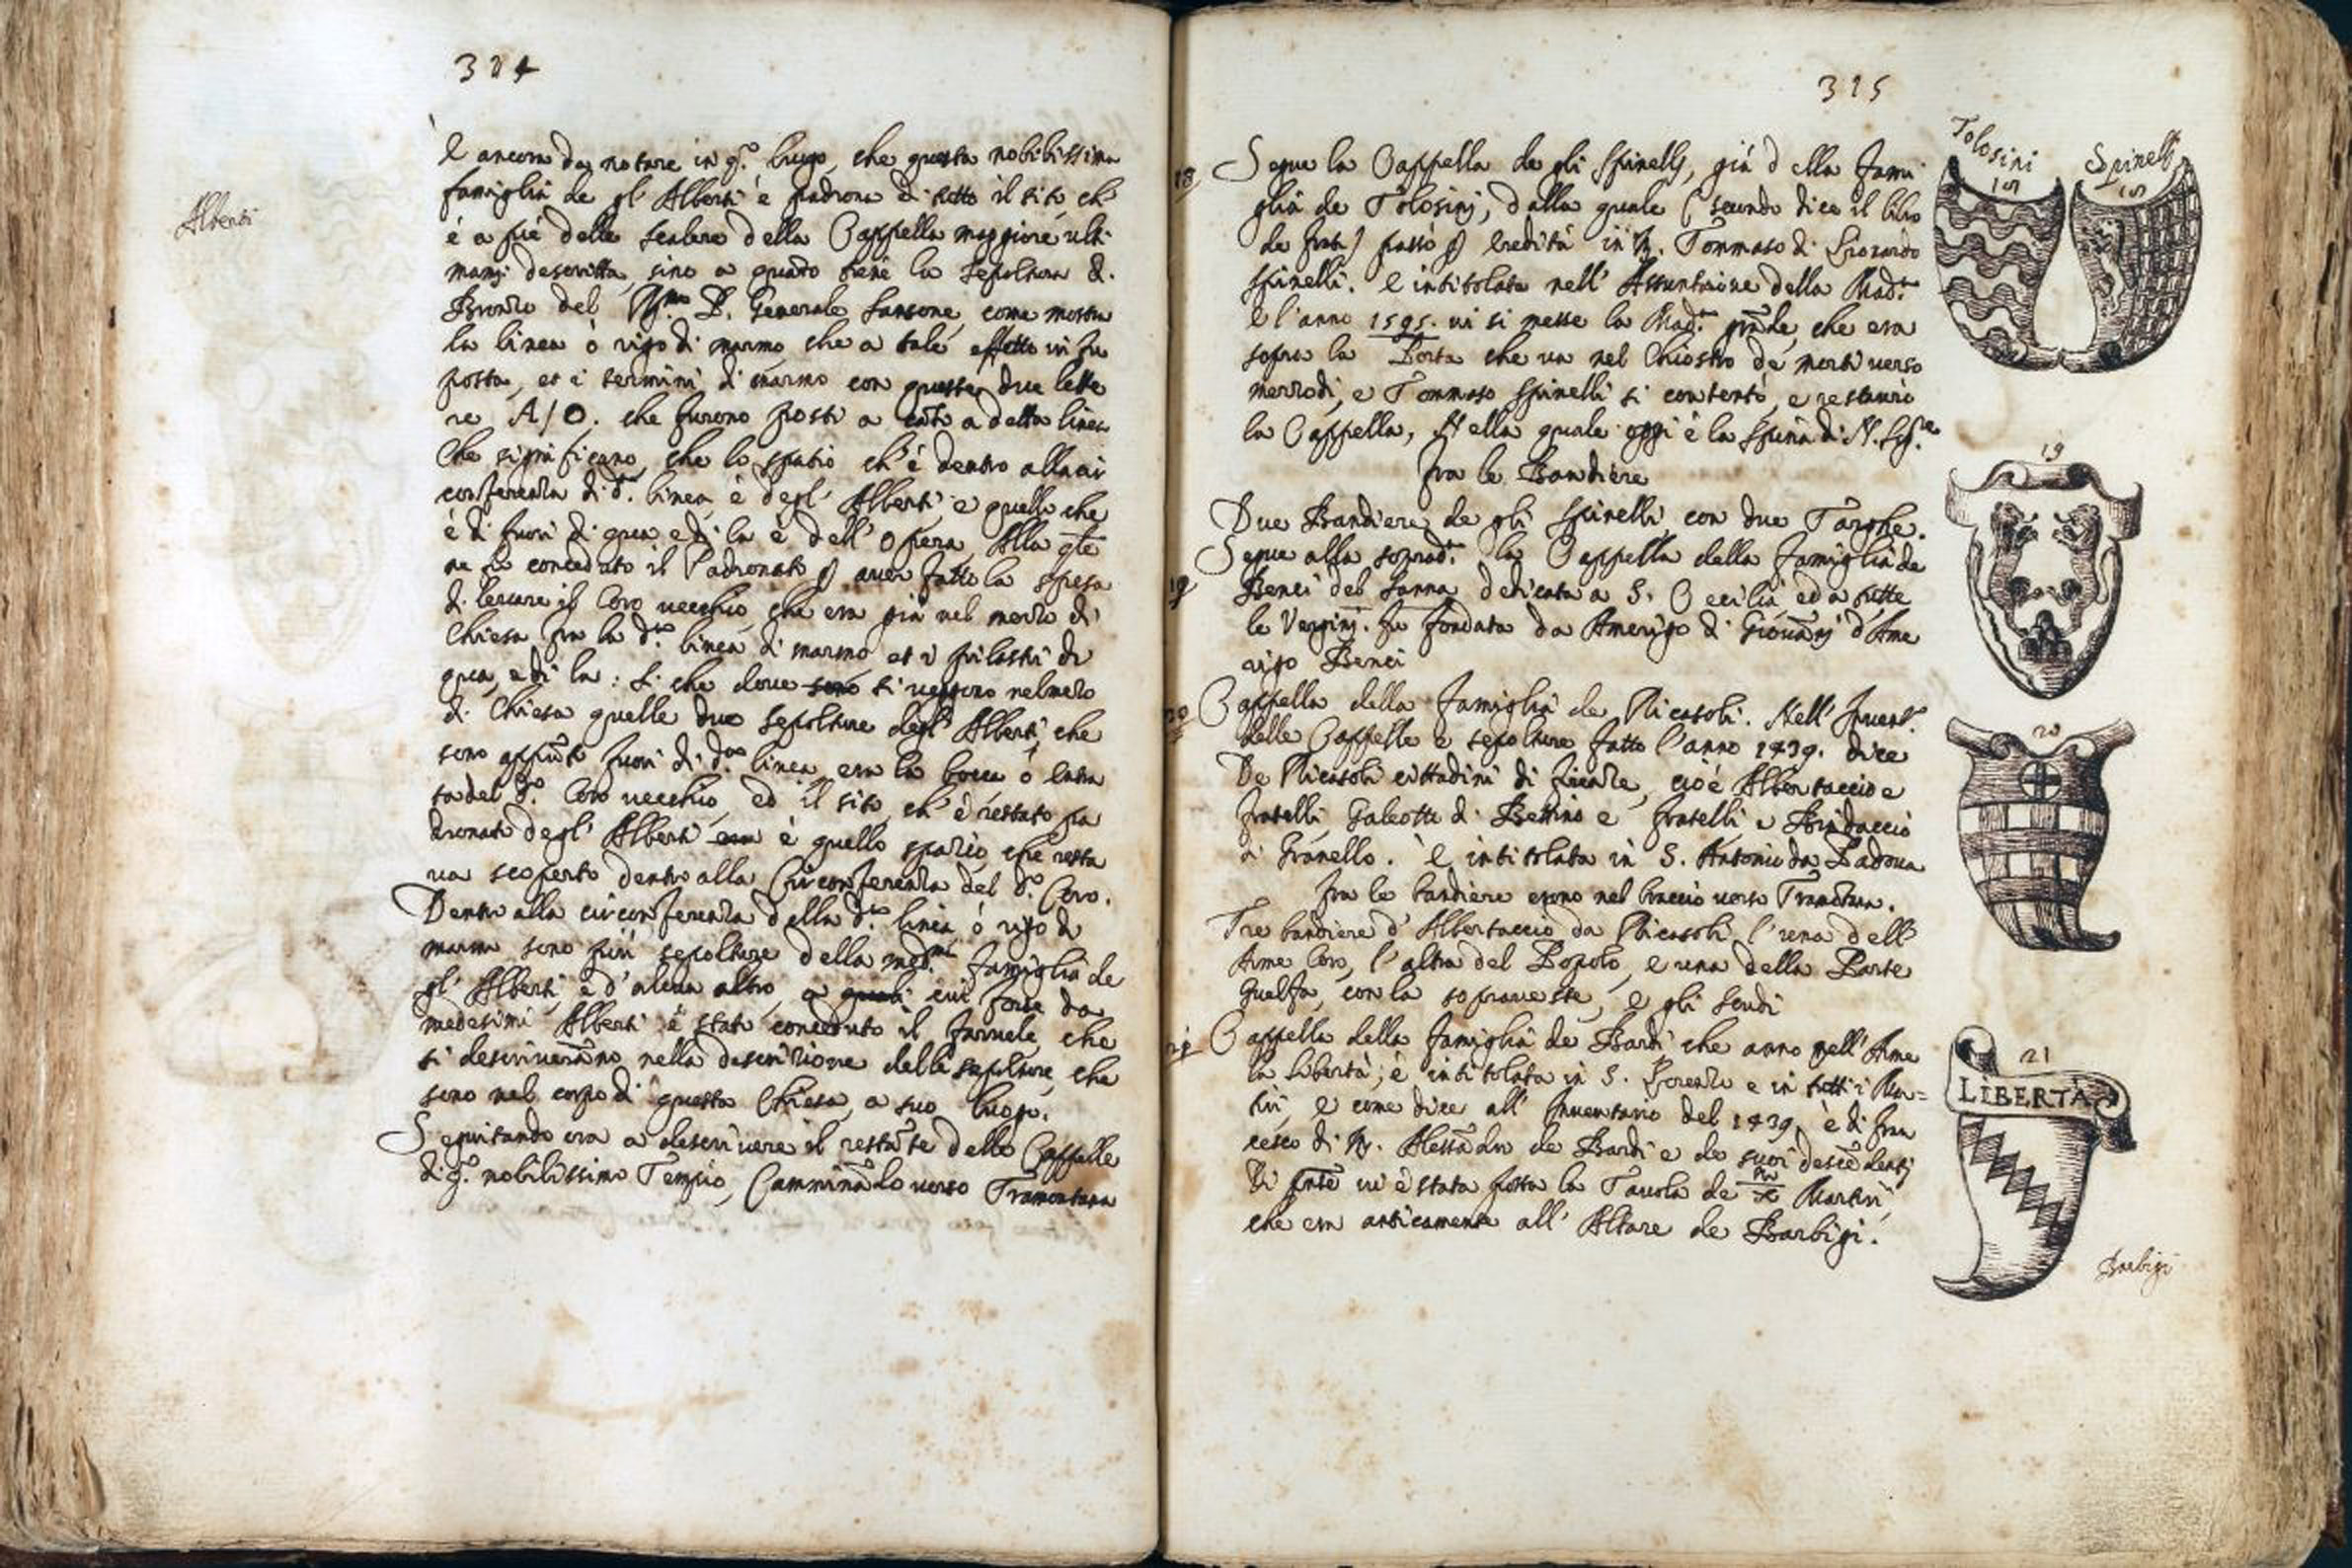 314
Alberti
È ancora da notare in q.º luogo, che questa nobilissima
famiglia de gl' Alberti è padrona di tutto il sito, ch'
è a piè delle scalere della Cappella maggiore ulti
mamᵉ descritta, sino a quãto tiene la sepoltura di
Bronzo del P. Generale Sansone, come mostra
la linea ò rigo di marmo, che a tale effetto vi fu
posta, et i termini di marmo con queste due lette
re A/O. che furono posti a cãto a detta linea
Che significano, che lo spatio ch'è dentro alla cir
conferenza di d.ª linea, è degl' Alberti, e quello che
è di fuori di qua e di la è dell' Opera. Alla gẽte
ne fu conceduto il Padronato ꝑ aver fatto la spesa
di levare il Coro vecchio, che era già nel mezzo di
Chiesa fra la d.ta linea di marmo et i pilastri di
qua, e di la: Si che dove sono si veggono nel mezo
di Chiesa quelle due sepolture degl' Alberti, che
sono appũto fuori di d.ta linea, era la bocca ò entra
ta del d.º Coro vecchio, ed il sito, ch'è restato pa
dronato degl' Alberti era è quello spazio, che resta
va scoperto dentro alla Circonferenza del d.º Coro.
Dentro alla circonferenza della d.ta linea ò rigo di
marmo sono più sepolture della med.ma famiglia de
gl' Alberti, e d'alcun altro, a quali cui forse da
medesimi Alberti è stato conceduto il farvele, che
si descriverãno nella descrizione delle sepolture, che
sono nel corpo di questa Chiesa, a suo luogo.
Seguitando ora a descrivere il restãte delle Cappelle
di q.º nobilissimo Tempio, Camminãdo verso Tramontana
315
18 Segue la Cappella de gli Spinelli, già della Fami
glia de Tolosini, dalla quale (secondo dice il libro
de frati) passò ꝑ eredità in M. Tommaso di Lionardo
Spinelli. È intitolata nell' Assuntione della Mad.na
E l'anno 1595. vi si messe la Mad.na grãde, che era
sopra la Porta che va nel Chiostro de morti verso
mezzodì, e Tommaso Spinelli si contentò, e restaurò
la Cappella, Nella quale oggi è la Spina di N. Sig.re
Fra le Bandiere
Due Bandiere de gli Spinelli con due Targhe.
19 Segue alla soprad.ta la Cappella della Famiglia de
Benci del Sanna dedicata a S. Cecilia ed a tutte
le Vergini. Fu fondata da Amerigo di Giovãni d'Ame
rigo Benci
20 Cappella della Famiglia de Ricasoli. Nell' Invent.º
delle Cappelle e sepolture fatto l'anno 1439. dice
De Ricasoli cittadini di Firenze, cioè Albertaccio e
fratelli, Galeotto di Bettino e fratelli e Brindaccio
di Granello. È intitolata in S. Antonio da Padova
Fra le bandiere erono nel braccio verso Tramõtana.
Tre bandiere d'Albertaccio da Ricasoli, l'una dell'
Arme loro, l'altra del Popolo, e una della Parte
Guelfa, con la sopraveste, e gli scudi
21 Cappella della famiglia de Bardi che anno nell' Arme
la Libertà; è intitolata in S. Lorenzo e in tutti i Mar=
tiri, e come dice all' Inventario del 1439, è di Fran
cesco di M. Alessãdro de Bardi e de suoi descẽdenti
Di ꝑnte vi è stata posta la Tavola de Martiri,
che era anticamente all' Altare de Barbigi.
Tolosini
18
Spinelli
18
19
20
21
LIBERTÀ
Barbigi